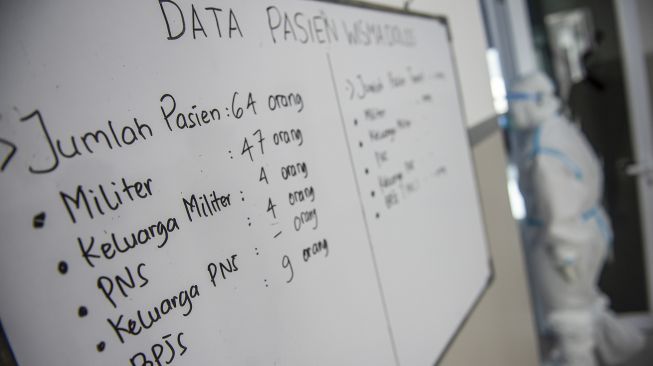 DATA PASIEN WISMA
> Jumlah Pasien : 64 orang
• Militer : 47 orang
• Keluarga Militer : 4 orang
• PNS : 4 orang
• Keluarga PNS : - orang
BPJS : 9 orang
> Jumlah Pasien
• Militer
• Keluarga Militer